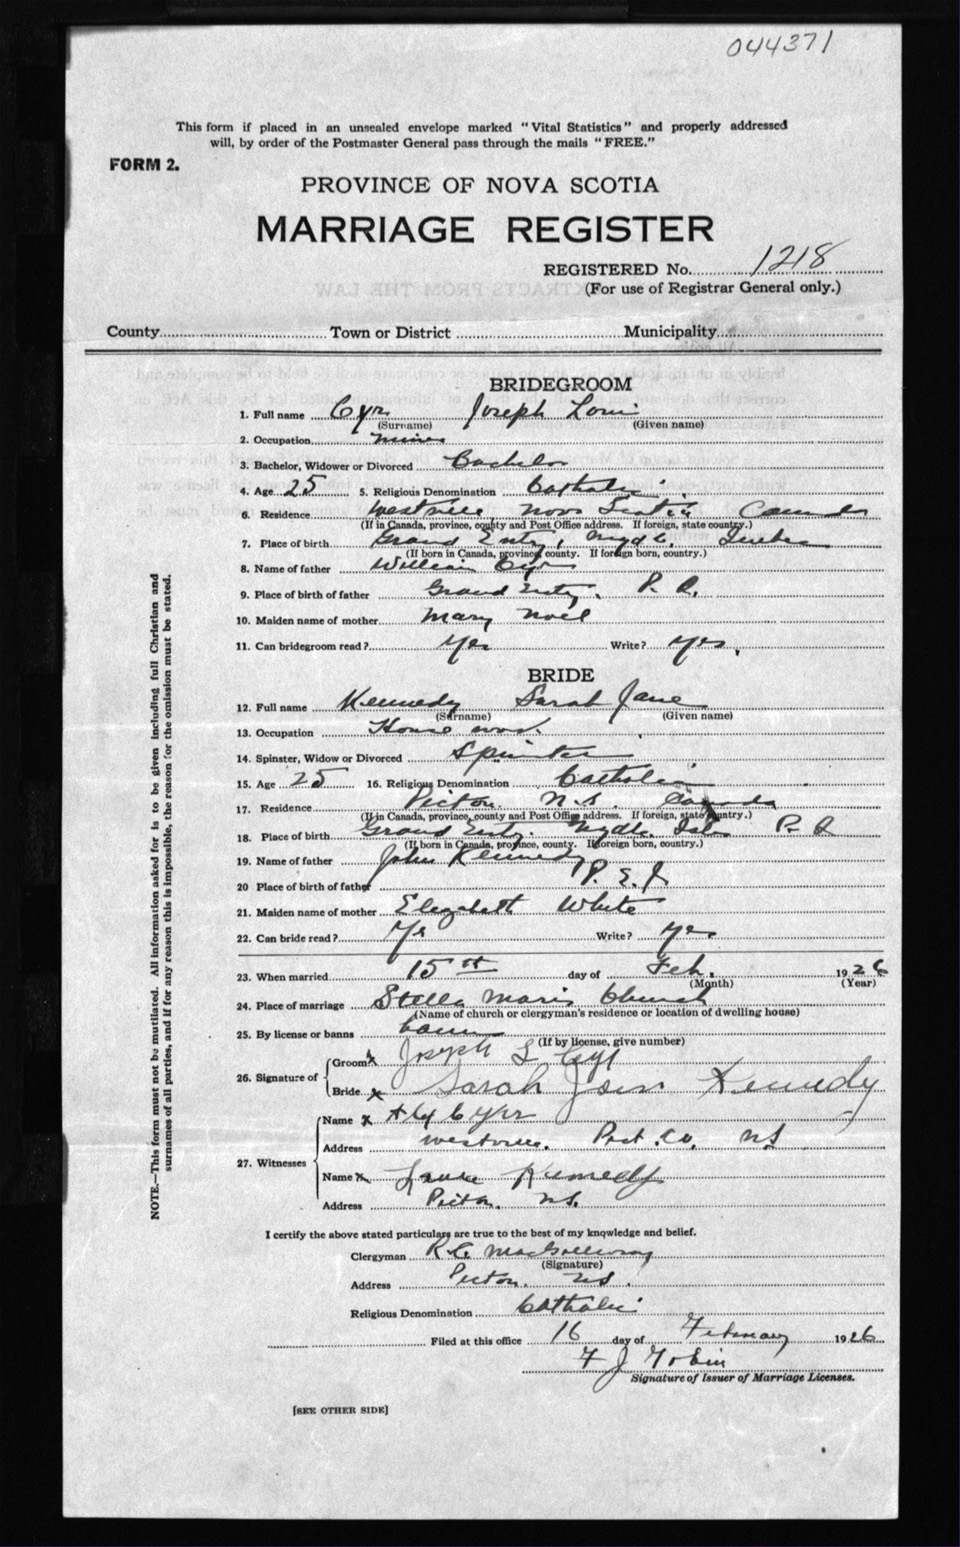 044371
This form if placed in an unsealed envelope marked "Vital Statistics" and properly addressed
will, by order of the Postmaster General pass through the mails "FREE."
FORM 2.
PROVINCE OF NOVA SCOTIA
MARRIAGE REGISTER
REGISTERED No. 1218
(For use of Registrar General only.)
County Town or District Municipality
BRIDEGROOM
1. Full name Cyr Joseph Loui
(Surname) (Given name)
2. Occupation miner
3. Bachelor, Widower or Divorced Bachelor
4. Age 25 5. Religious Denomination Catholic
6. Residence Westville, Nova Scotia Canada
(If in Canada, province, county and Post Office address. If foreign, state country.)
7. Place of birth Grand Entry, Magd. Quebec
(If born in Canada, province, county. If foreign born, country.)
8. Name of father William Cyr
9. Place of birth of father Grand Entry. P. Q.
10. Maiden name of mother Mary Noel
11. Can bridegroom read? Yes Write? Yes.
BRIDE
12. Full name Kennedy Sarah Jane
(Surname) (Given name)
13. Occupation House work
14. Spinster, Widow or Divorced Spinster
15. Age 25 16. Religious Denomination Catholic
17. Residence Pictou N.S. Canada
(If in Canada, province, county and Post Office address. If foreign, state country.)
18. Place of birth Grand Entry. Magdl. Isls P. Q
(If born in Canada, province, county. If foreign born, country.)
19. Name of father John Kennedy
20 Place of birth of father P. E. I
21. Maiden name of mother Elizabeth White
22. Can bride read? Yes Write? Yes
23. When married 15th day of Feb. 1926
(Month) (Year)
24. Place of marriage Stella Maris Church
(Name of church or clergyman's residence or location of dwelling house)
25. By license or banns banns
(If by license, give number)
26. Signature of
Groom x Joseph L Cyr
Bride x Sarah Jean Kennedy
27. Witnesses
Name x Alex Cyr
Address Westville. Pict. Co. NS
Name x Kennedy
Address Pictou. NS.
I certify the above stated particulars are true to the best of my knowledge and belief.
Clergyman R. C. MacGillivray
(Signature)
Address Pictou. NS.
Religious Denomination Catholic
Filed at this office 16 day of February 1926
F J Tobin
Signature of Issuer of Marriage Licenses.
[SEE OTHER SIDE]
NOTE.—This form must not be mutilated. All information asked for is to be given including full Christian and
surnames of all parties, and if for any reason this is impossible, the reason for the omission must be stated.